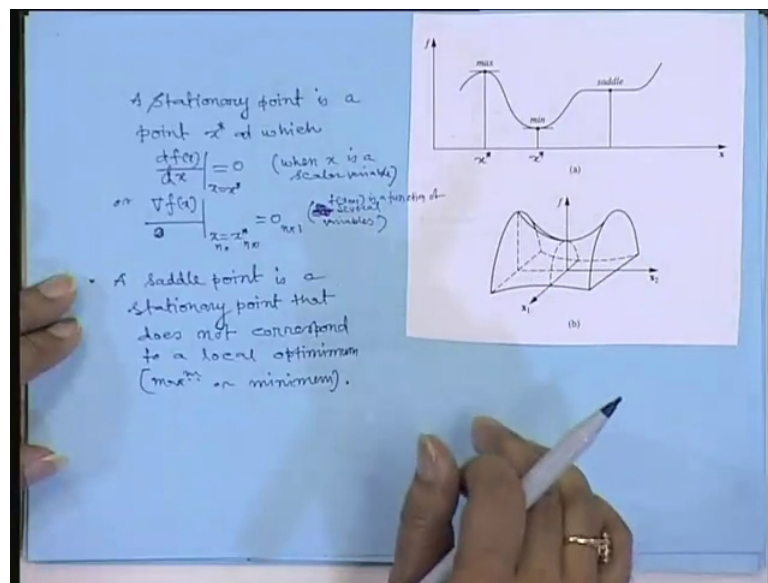 A stationary point is a
point x* at which
df(x)/dx |x=x* = 0 (when x is a
scalar variable)
or ∇f(x) | = 0 n×1 (f(x) is a function of
several
variables)
• A saddle point is a
stationary point that
does not correspond
to a local optimimum
(maxm or minimem).
f
max
saddle
min
x* x* x
(a)
f
x2
x1
(b)